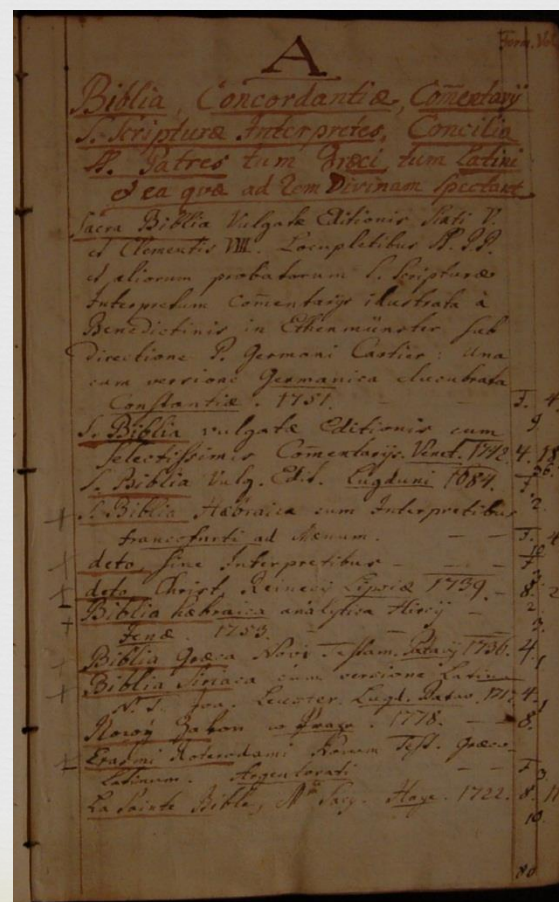 Form. Vol.
A
Biblia, Concordantiæ, Com̄entarij
S. Scripturæ Interpretes, Concilia
SS. Patres tum Græci tum Latini
et ea quæ ad rem Divinam spectant
Sacra Biblia Vulgatæ Editionis Sixti V.
et Clementis VIII. Locupletibus SS. PP.
et aliorum probatorum S. Scripturæ
Interpretum com̄entarijs illustrata à
Benedictinis in Ethenmünster sub
directione P. Germani Cartier: una
cum versione Germanica elucubrata
Constantiæ. 1751. F. 4
S. Biblia vulgatæ Editionis cum
selectissimis Com̄entarijs. Venet. 1742. 4. 18
S. Biblia Vulg. Edit. Lugduni 1684.
S. Biblia Hebraica cum Interpretibus
francofurti ad Mænum. - - F.
deto, sine Interpretibus - - -
deto Christ. Reinecij Lipsiæ 1739. - 8.
Biblia hæbraica analytica
Jenæ. 1753.
Biblia Græca Novi Testam. Patavij 1736. 4.
Biblia Siriaca cum versione Latina
N. T. Joa. Leuster. Lugd. Batav. 1717. 4.
Nowy Zakon w Praze. 1778. - - 8.
Erasmi Roterodami Novum Test. Græco-
Latinum. Argentorati - - F
La Sainte Bible, Mr Sacy. Haye. 1722. 8.
10.
80